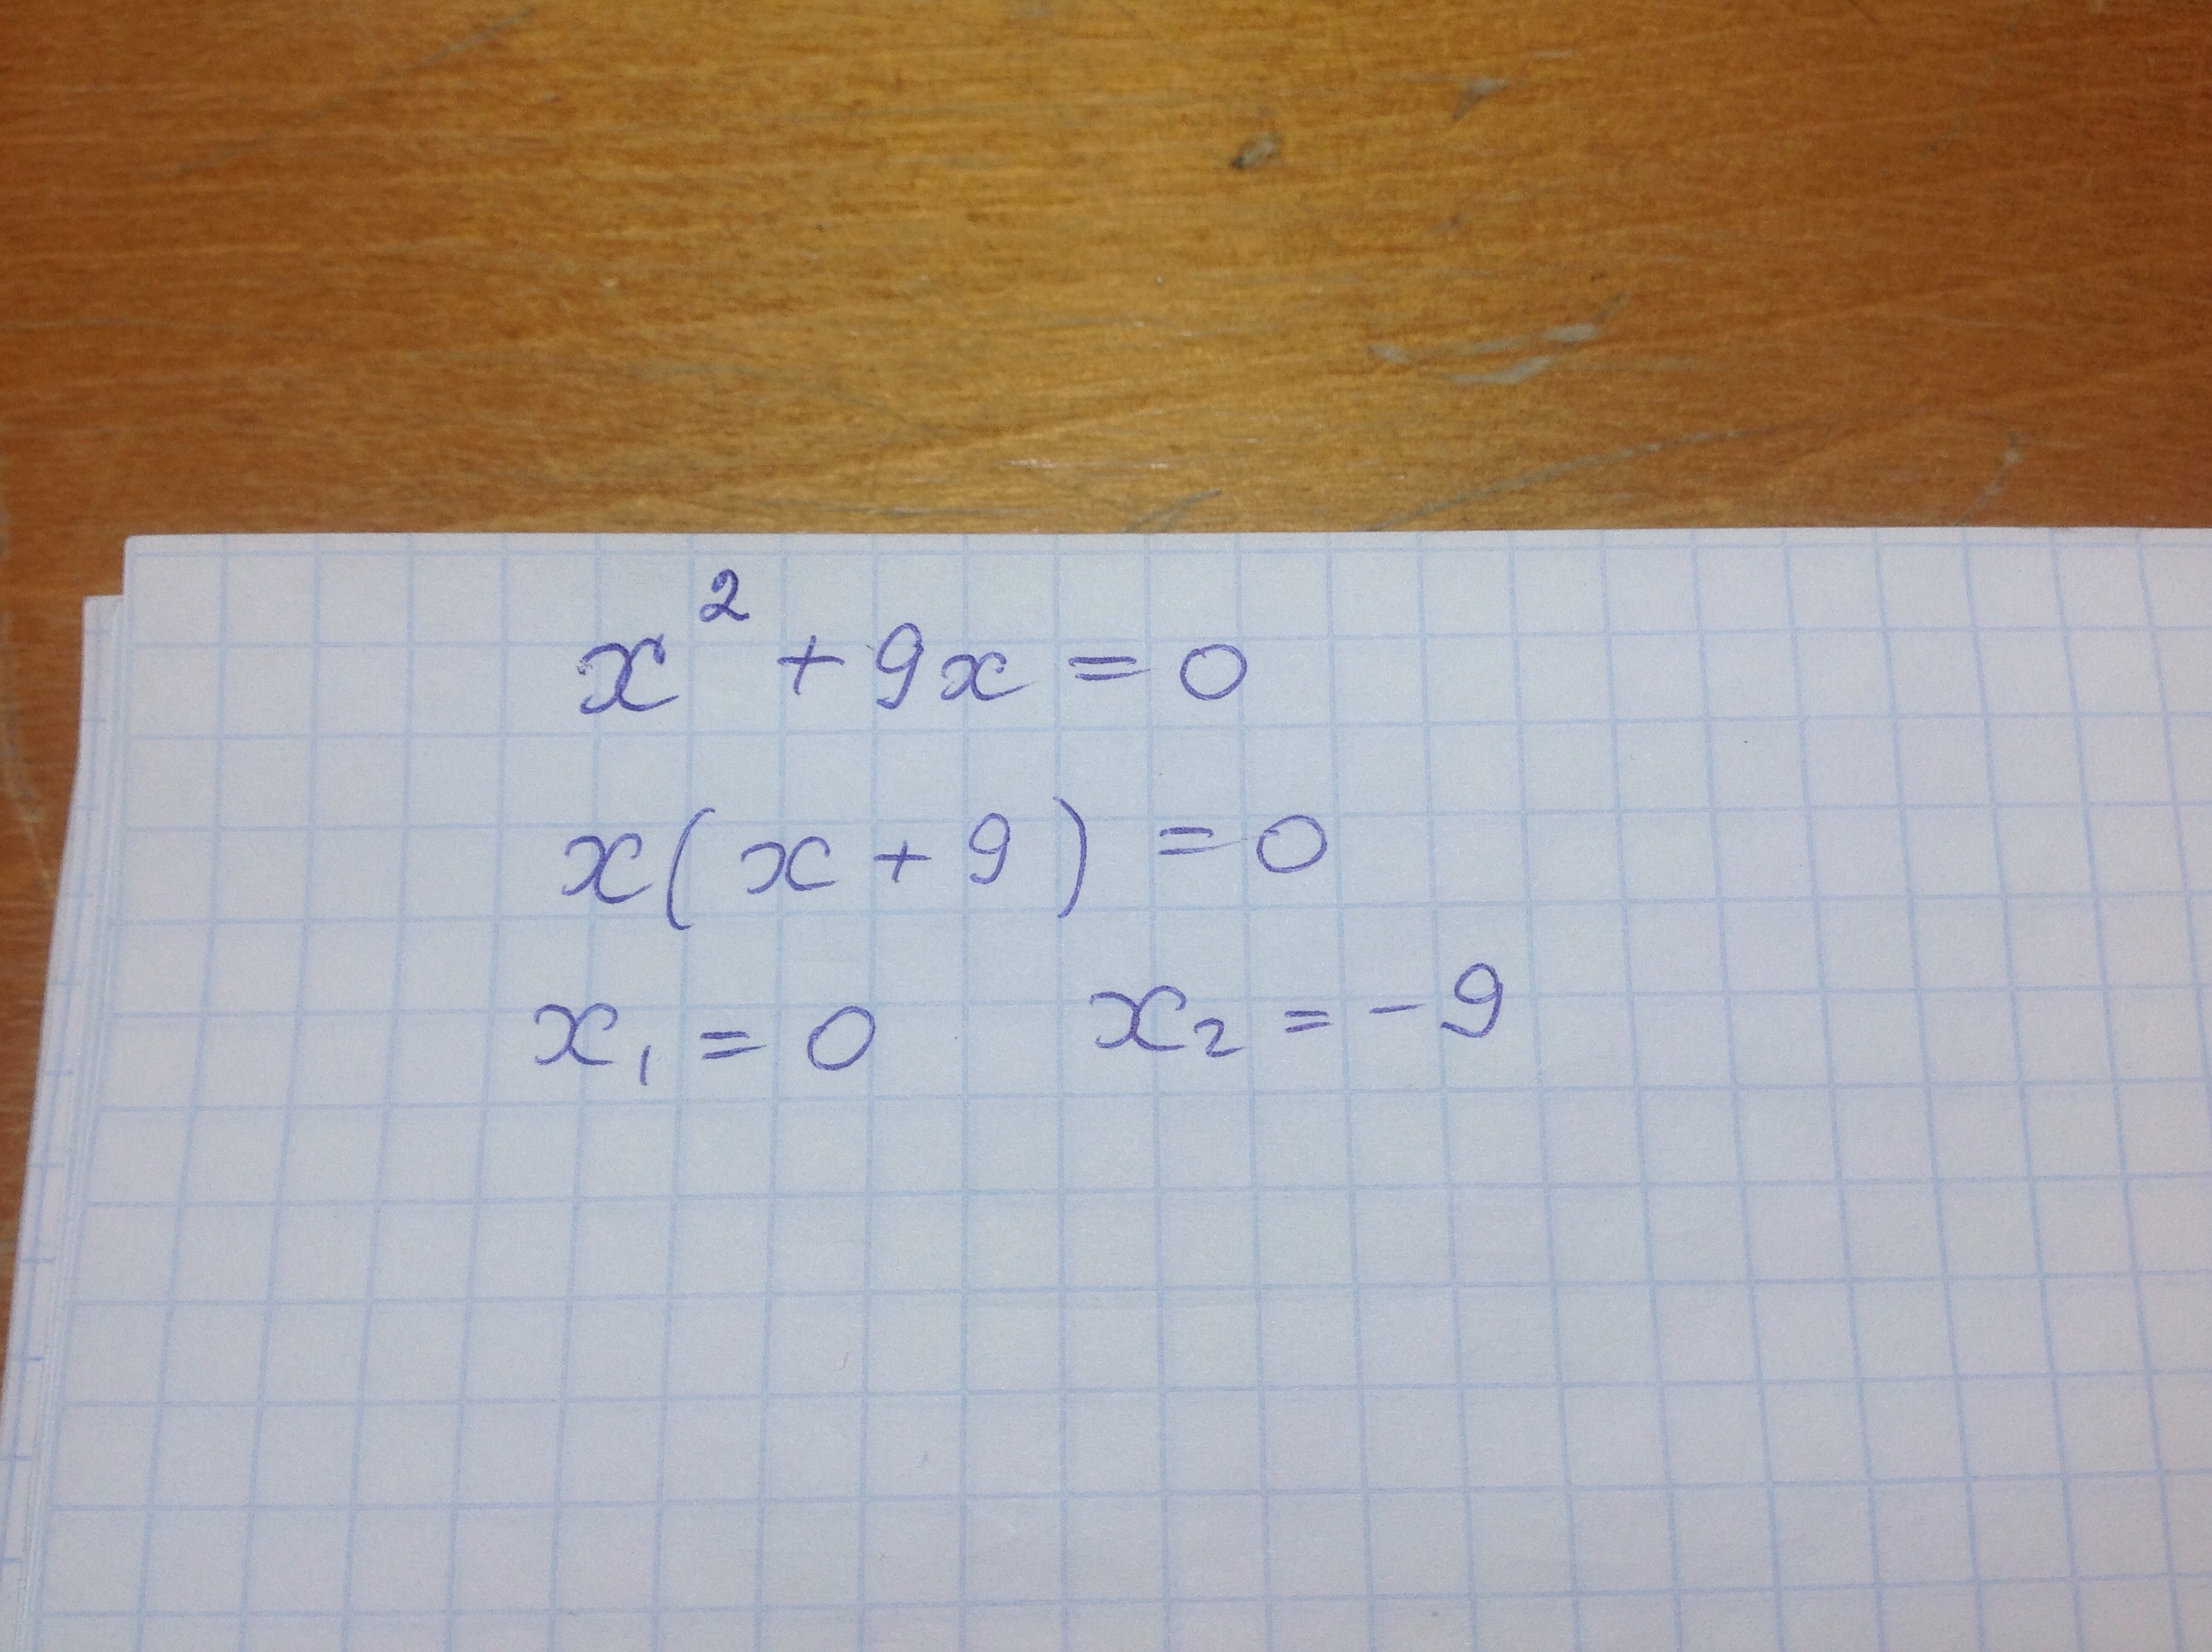 x² + 9x = 0
x(x + 9) = 0
x₁ = 0 x₂ = -9